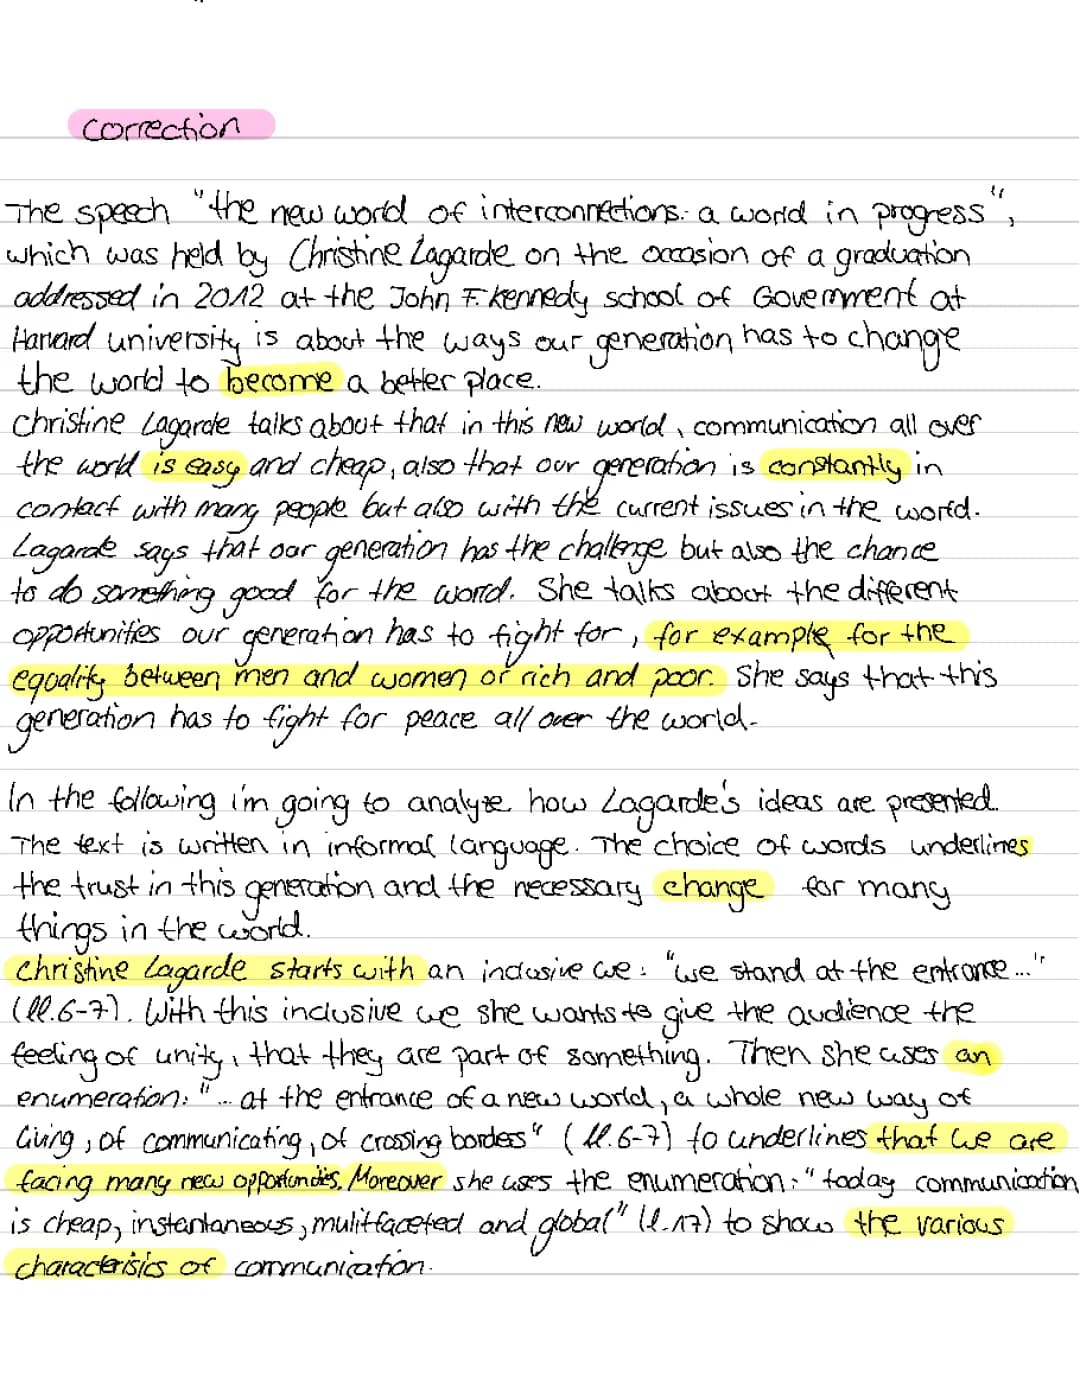 correction
The speech "the new world of interconnections: a world in progress",
which was held by Christine Lagarde on the occasion of a graduation
addressed in 2012 at the John F. Kennedy school of Government at
Harvard university is about the ways our generation has to change
the world to become a better place.
Christine Lagarde talks about that in this new world, communication all over
the world is easy and cheap, also that our generation is constantly in
contact with many people but also with the current issues in the world.
Lagarde says that our generation has the challenge but also the chance
to do something good for the world. She talks about the different
opportunities our generation has to fight for, for example for the
equality between men and women or rich and poor. She says that this
generation has to fight for peace all over the world.
In the following i'm going to analyze how Lagarde's ideas are presented.
The text is written in informal language. The choice of words underlines
the trust in this generation and the necessary change for many
things in the world.
Christine Lagarde starts with an inclusive we: "we stand at the entrance..."
(ll.6-7). With this inclusive we she wants to give the audience the
feeling of unity, that they are part of something. Then she uses an
enumeration: "... at the entrance of a new world, a whole new way of
living, of communicating, of crossing borders" (ll.6-7) to underlines that we are
facing many new opportunities. Moreover she uses the enumeration: "today communication
is cheap, instantaneous, mulitfaceted and global" (l.17) to show the various
characterisics of communication.